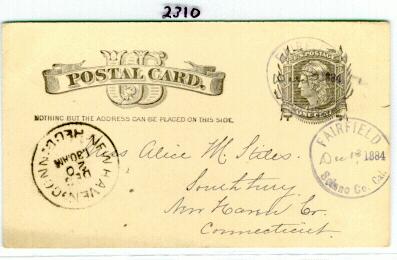 2310
POSTAL CARD.
U S
NOTHING BUT THE ADDRESS CAN BE PLACED ON THIS SIDE.
POSTAGE
ONE CENT
1884
FAIRFIELD
Dec 13 1884
Solano Co. Cal.
NEW HAVEN, CONN. REC'D.
DEC
20
1 30 AM
Miss Alice M Stiles.
Southbury.
New Haven Co.
Connecticut.